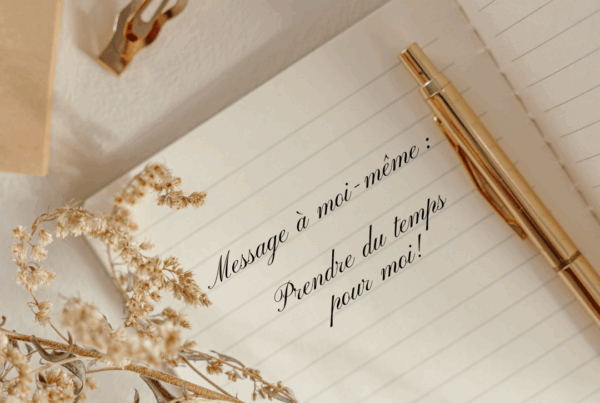 Message à moi-même :
Prendre du temps
pour moi!